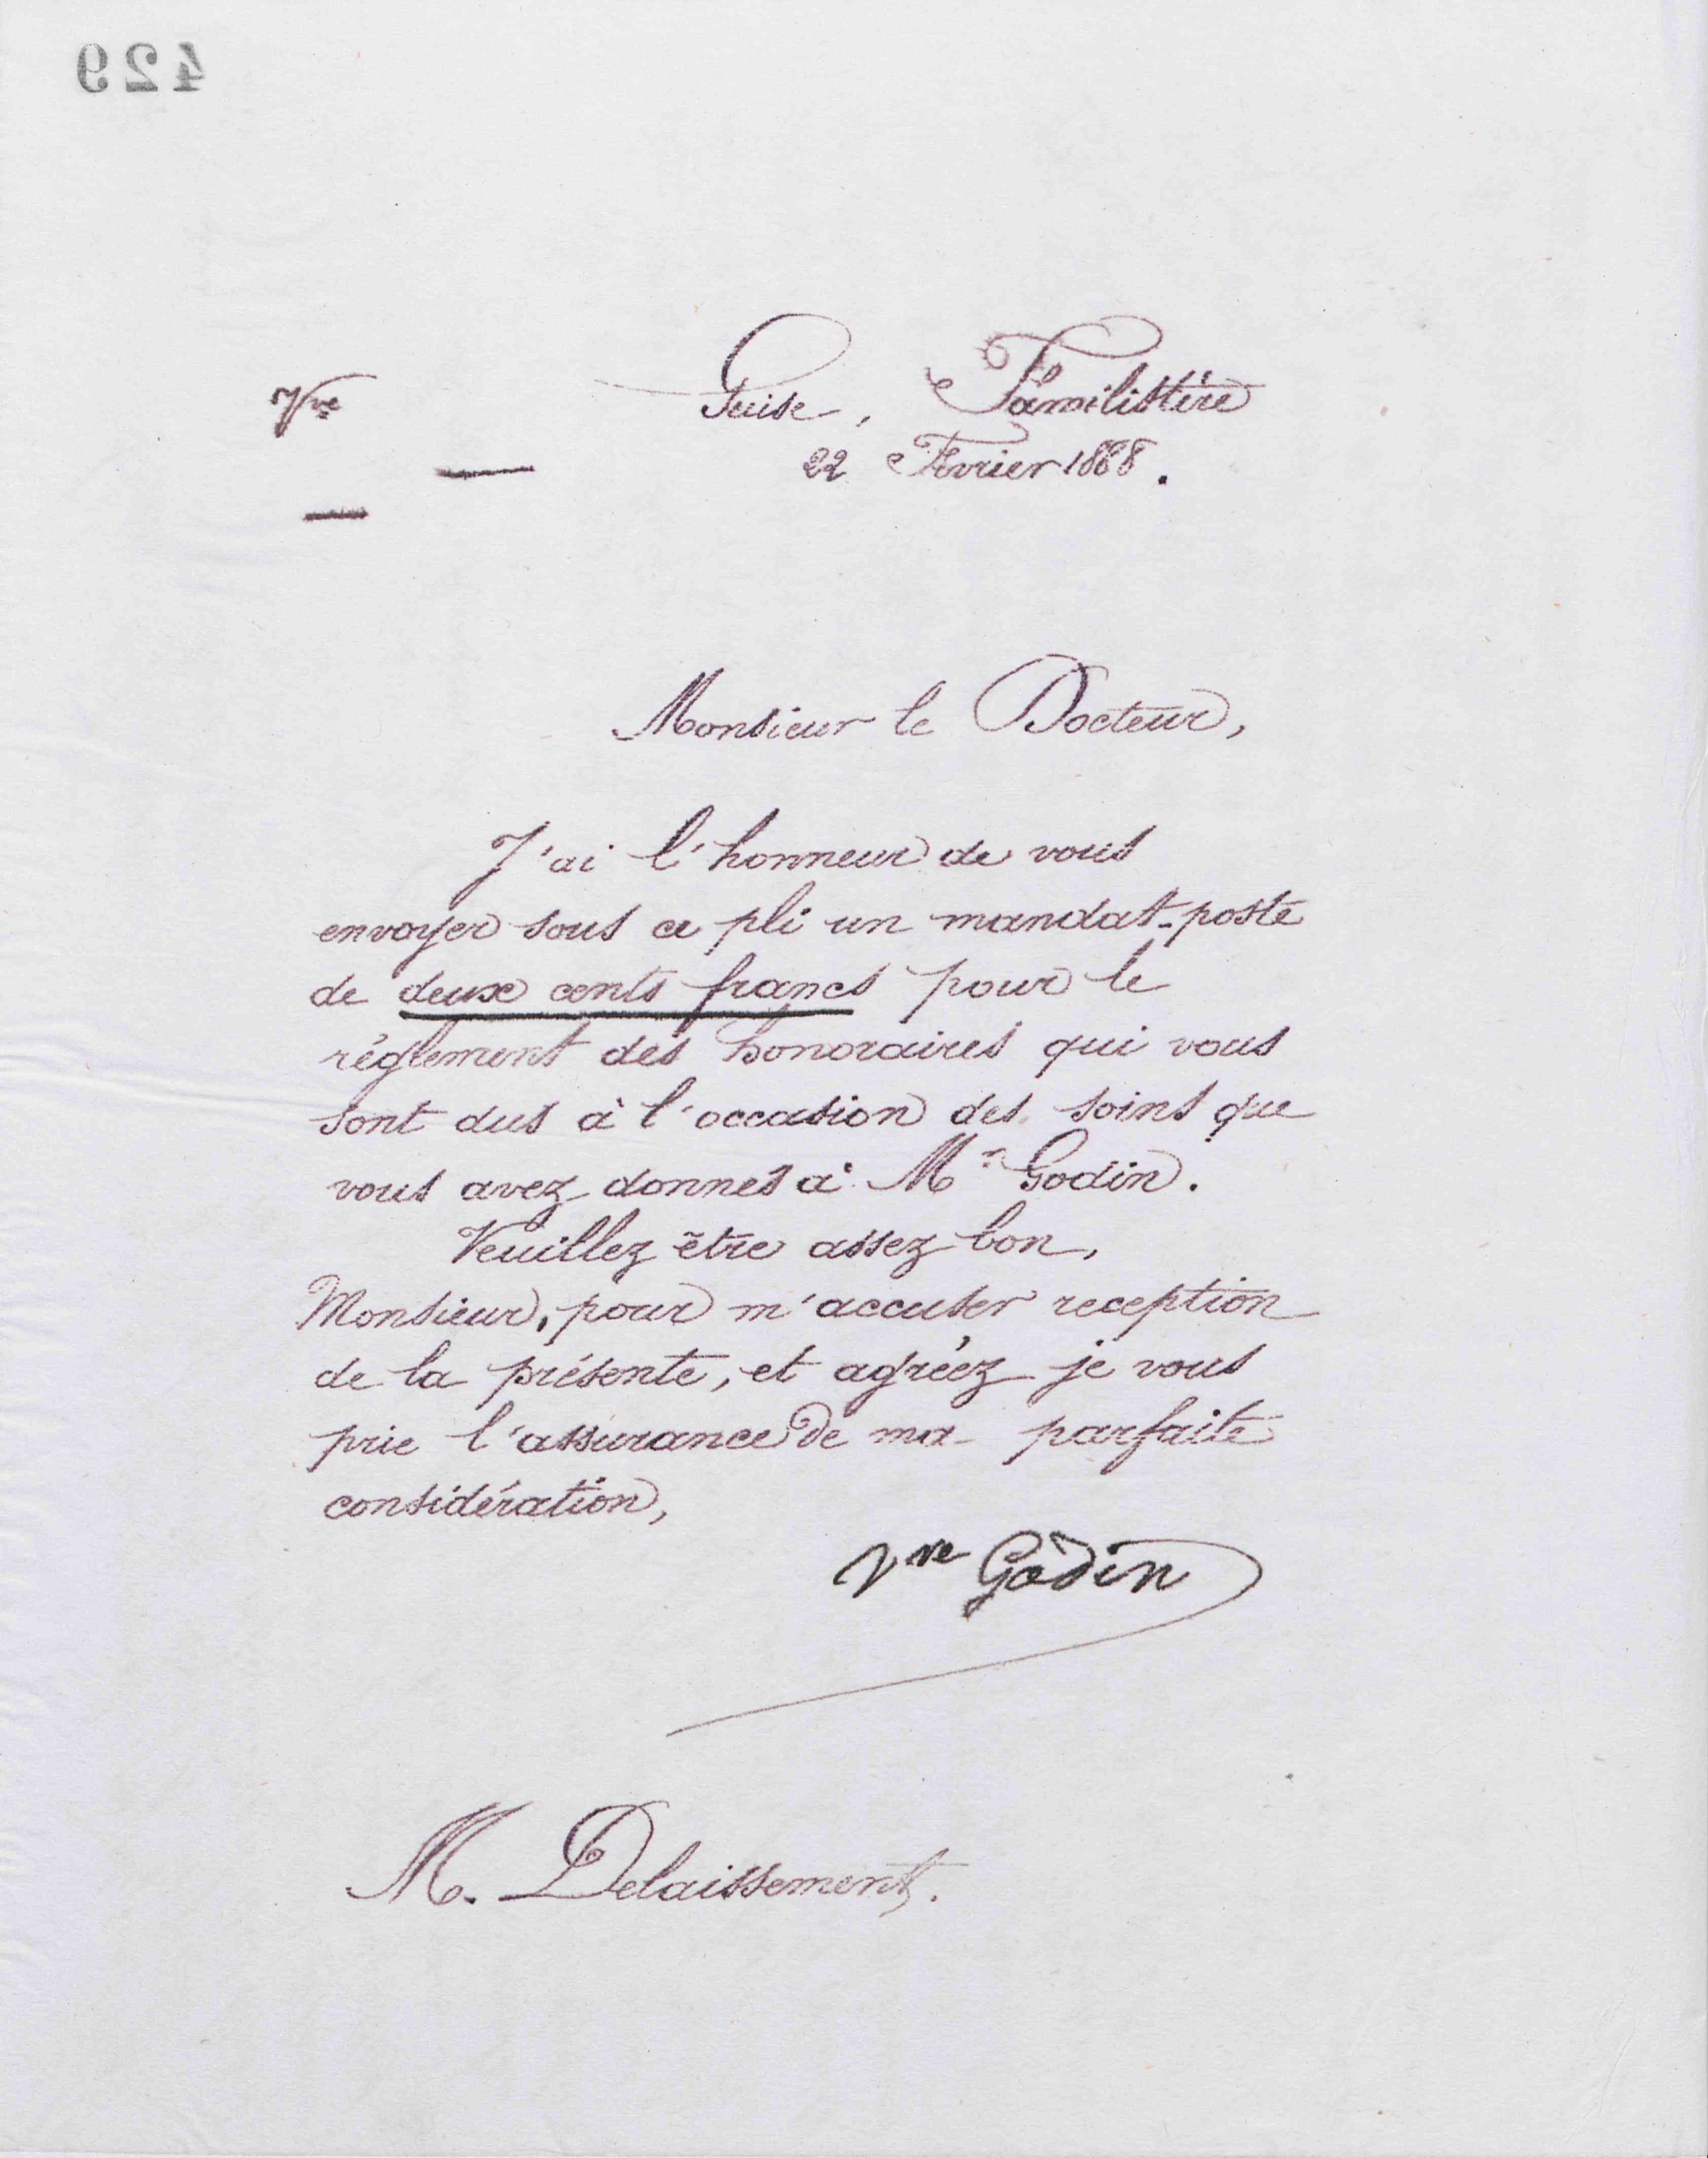 429
Vve
Guise, Familistère
22 Février 1888.
Monsieur le Docteur,
J'ai l'honneur de vous
envoyer sous ce pli un mandat-poste
de deux cents francs pour le
réglement des honoraires qui vous
sont dus à l'occasion des soins que
vous avez donnés à Mr Godin.
Veuillez être assez bon,
Monsieur, pour m'accuser reception
de la présente, et agréez je vous
prie l'assurance de ma parfaite
considération,
Vve Godin
M. Delaissement.